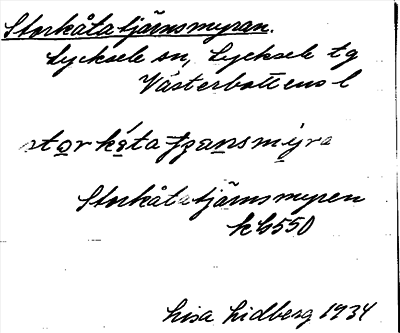 Storkåtatjärnsmyran.
Lycksele sn, Lycksele tg
Västerbottens l
Storkåtatjärnsmyren
kb550
Lisa Lidberg 1934